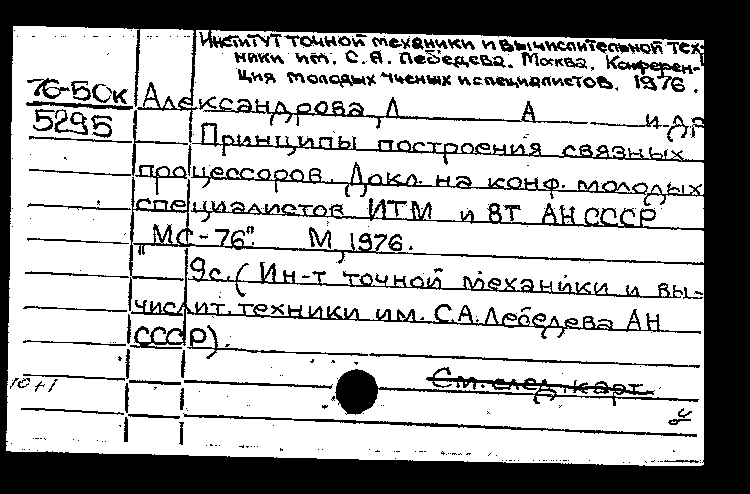 Институт точной механики и вычислительной тех-
ники им. С.А. Лебедева. Москва. Конферен-
ция молодых ученых и специалистов. 1976.
76-50к
5295
Александрова, Л А и др
Принципы построения связных
процессоров. Докл. на конф. молодых
специалистов ИТМ и ВТ АН СССР
"МС-76". М, 1976.
9с. (Ин-т точной механики и вы-
числит. техники им. С.А. Лебедева АН
СССР).
См. след. карт.
10+1